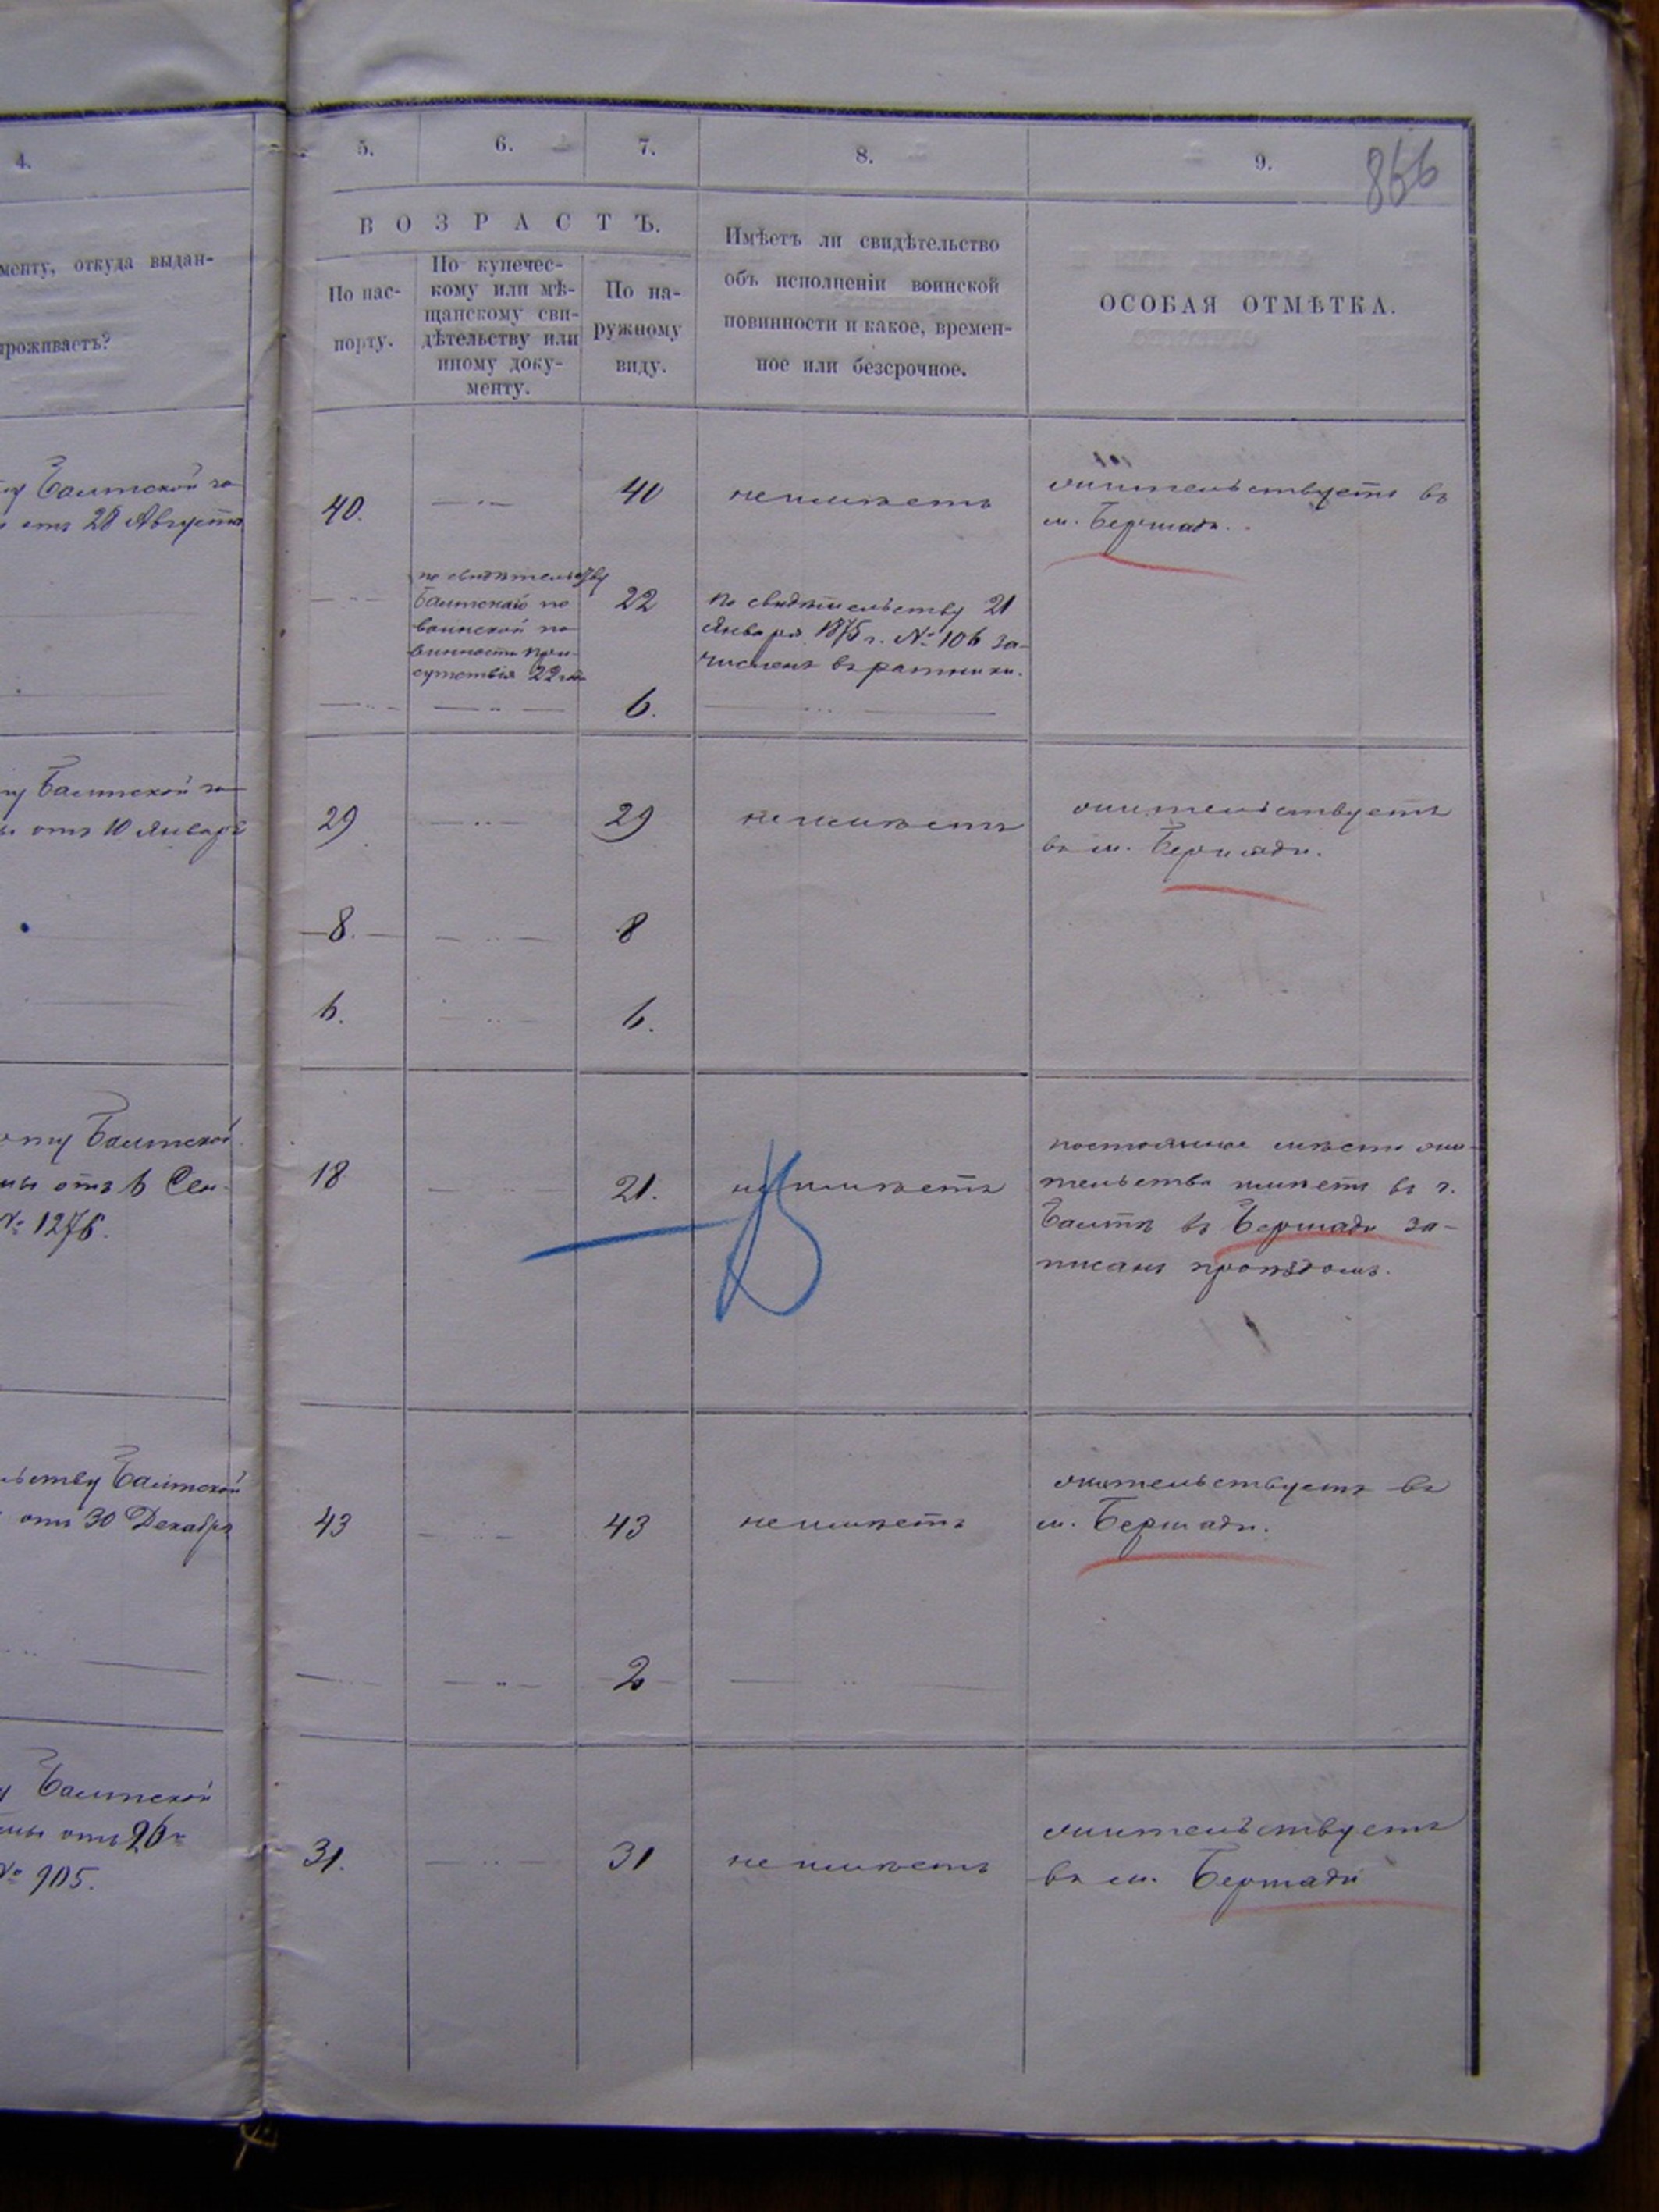 866
4. 5. 6. 7. 8. 9.
ВОЗРАСТЪ.
менту, откуда выдан-
проживаетъ?
По пас-
порту.
По купечес-
кому или мѣ-
щанскому сви-
дѣтельству или
иному доку-
менту.
По на-
ружному
виду.
Имѣетъ ли свидѣтельство
объ исполненіи воинской
повинности и какое, времен-
ное или безсрочное.
ОСОБАЯ ОТМѢТКА.
Балтской го
отъ 28 Августа
40.
40
неимѣетъ
жительствуетъ въ
м. Бершади.
по свидѣтельству
Балтскаго по
воинской по
винности при-
сутствія 22 года
22
по свидѣтельству 21
Января 1875 г. № 106 за-
численъ въ ратники.
6.
Балтской го
отъ 10 Января
29
29
неимѣетъ
жительствуетъ
въ м. Бершади.
8.
8
6.
6.
Балтской
отъ 6 Сен-
№ 1276.
18
21.
неимѣетъ
постоянное мѣсто жи-
тельства имѣетъ въ г.
Балтѣ въ Бершади за-
писанъ проѣздомъ.
льству Балтской
отъ 30 Декабря
43
43
неимѣетъ
жительствуетъ въ
м. Бершади.
2
Балтской
отъ 26
№ 905.
31.
31
неимѣетъ
жительствуетъ
въ м. Бершади